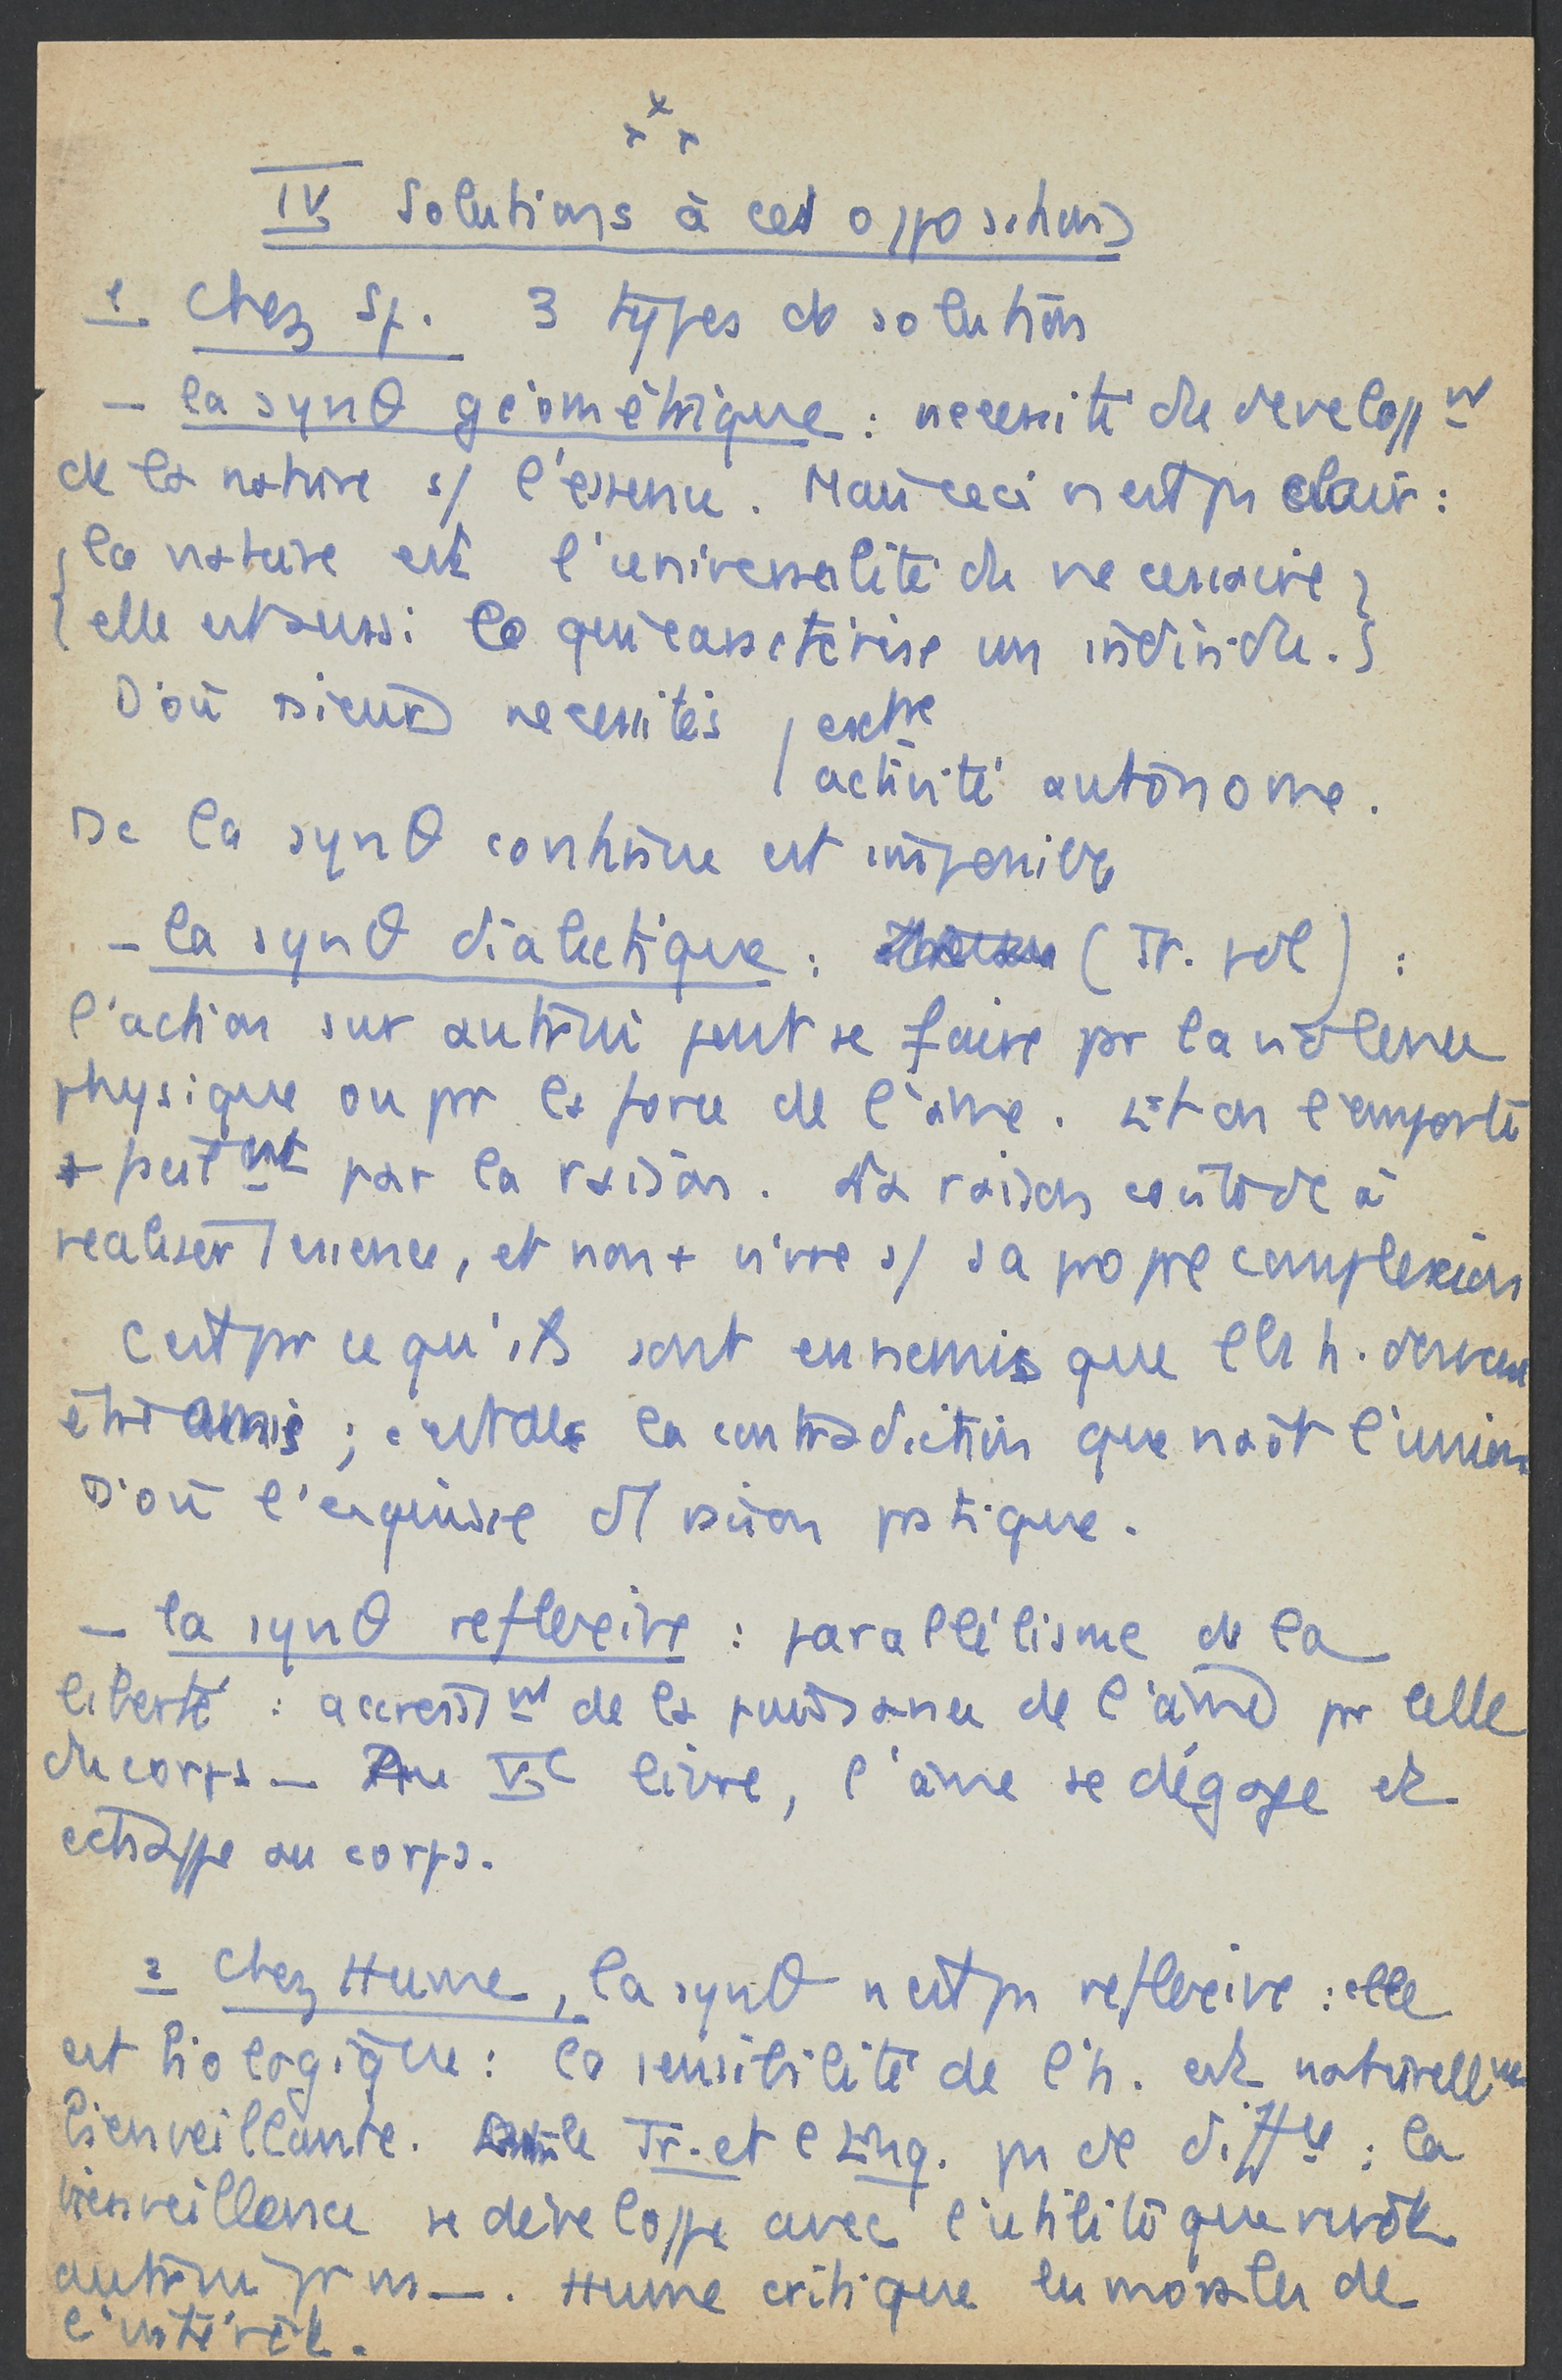 x x x
IV Solutions à ces oppositions
1. Chez Sp. 3 types de solution
– la synθ géométrique : necessité du developpt
de la nature s/ l'essence. Mais ceci n'est pas clair :
{ la nature est l'universalité du necessaire }
{ elle est aussi ce qui caractérise un individu. }
D'où deux necessités / extre
/ activité autonome.
Dc la synθ continue est impossible
– la synθ dialectique : (Tr. pol) :
l'action sur autrui peut se faire par la violence
physique ou par la force de l'âme. Et on l'emporte
+ par la raison. La raison à
realiser l'essence, et non + vivre s/ sa propre complexion
C'est parce qu'ils sont ennemis que les h. doivent
être amis ; c'est de la contradiction que naît l'union
D'où l'esquisse d/ raison pratique.
– la synθ reflexive : parallélisme de la
liberté : accroisst de la puissance de l'âme par celle
du corps – Au Ve livre, l'âme se dégage et
echappe au corps.
2 Chez Hume, la synθ n'est pas reflexive : elle
est biologique : la sensibilité de l'h. est naturellmt
bienveillante. le Tr. et l'Enq. pas de diffce : la
bienveillance se développe avec l'utilité que revêt
autrui pr ns –. Hume critique les morales de
l'intérêt.